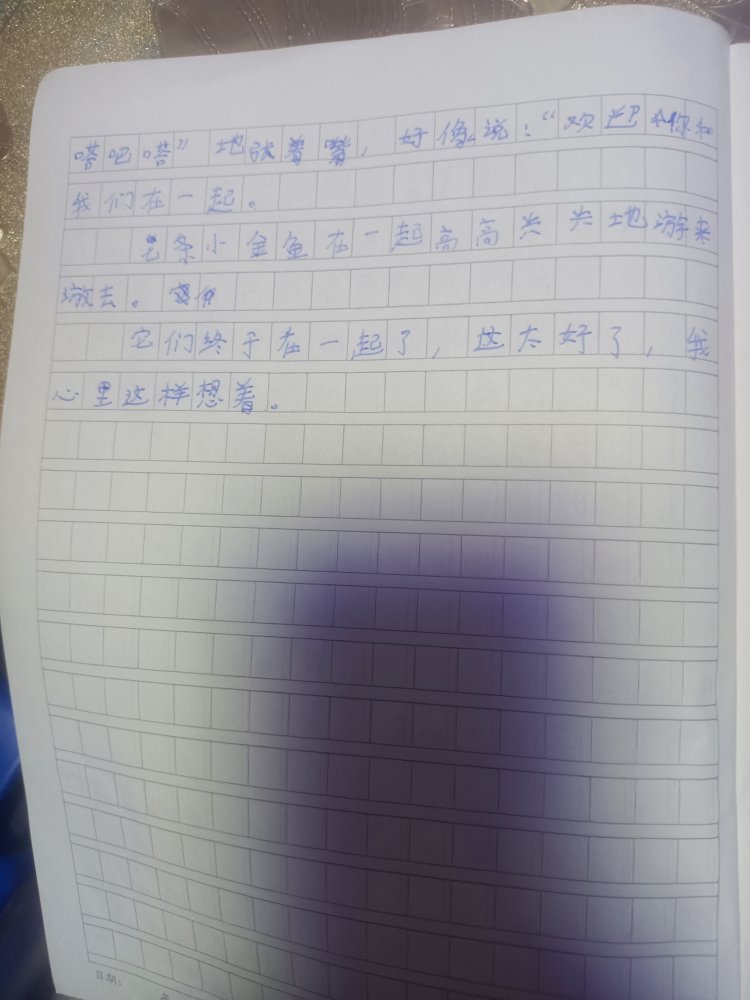 嗒吧嗒”地张着嘴，好像说：“欢迎你和
我们在一起。
七条小金鱼在一起高高兴兴地游来
游去。
它们终于在一起了，这太好了，我
心里这样想着。
日期：